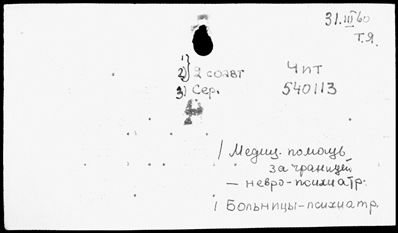 31.III 60
Т.Я.
1)
2) 2 соавт
3) Сер.
Чпт
540113
/ Медиц. помощь
за границей
— невро-психиатр.
/ Больницы-психиатр.